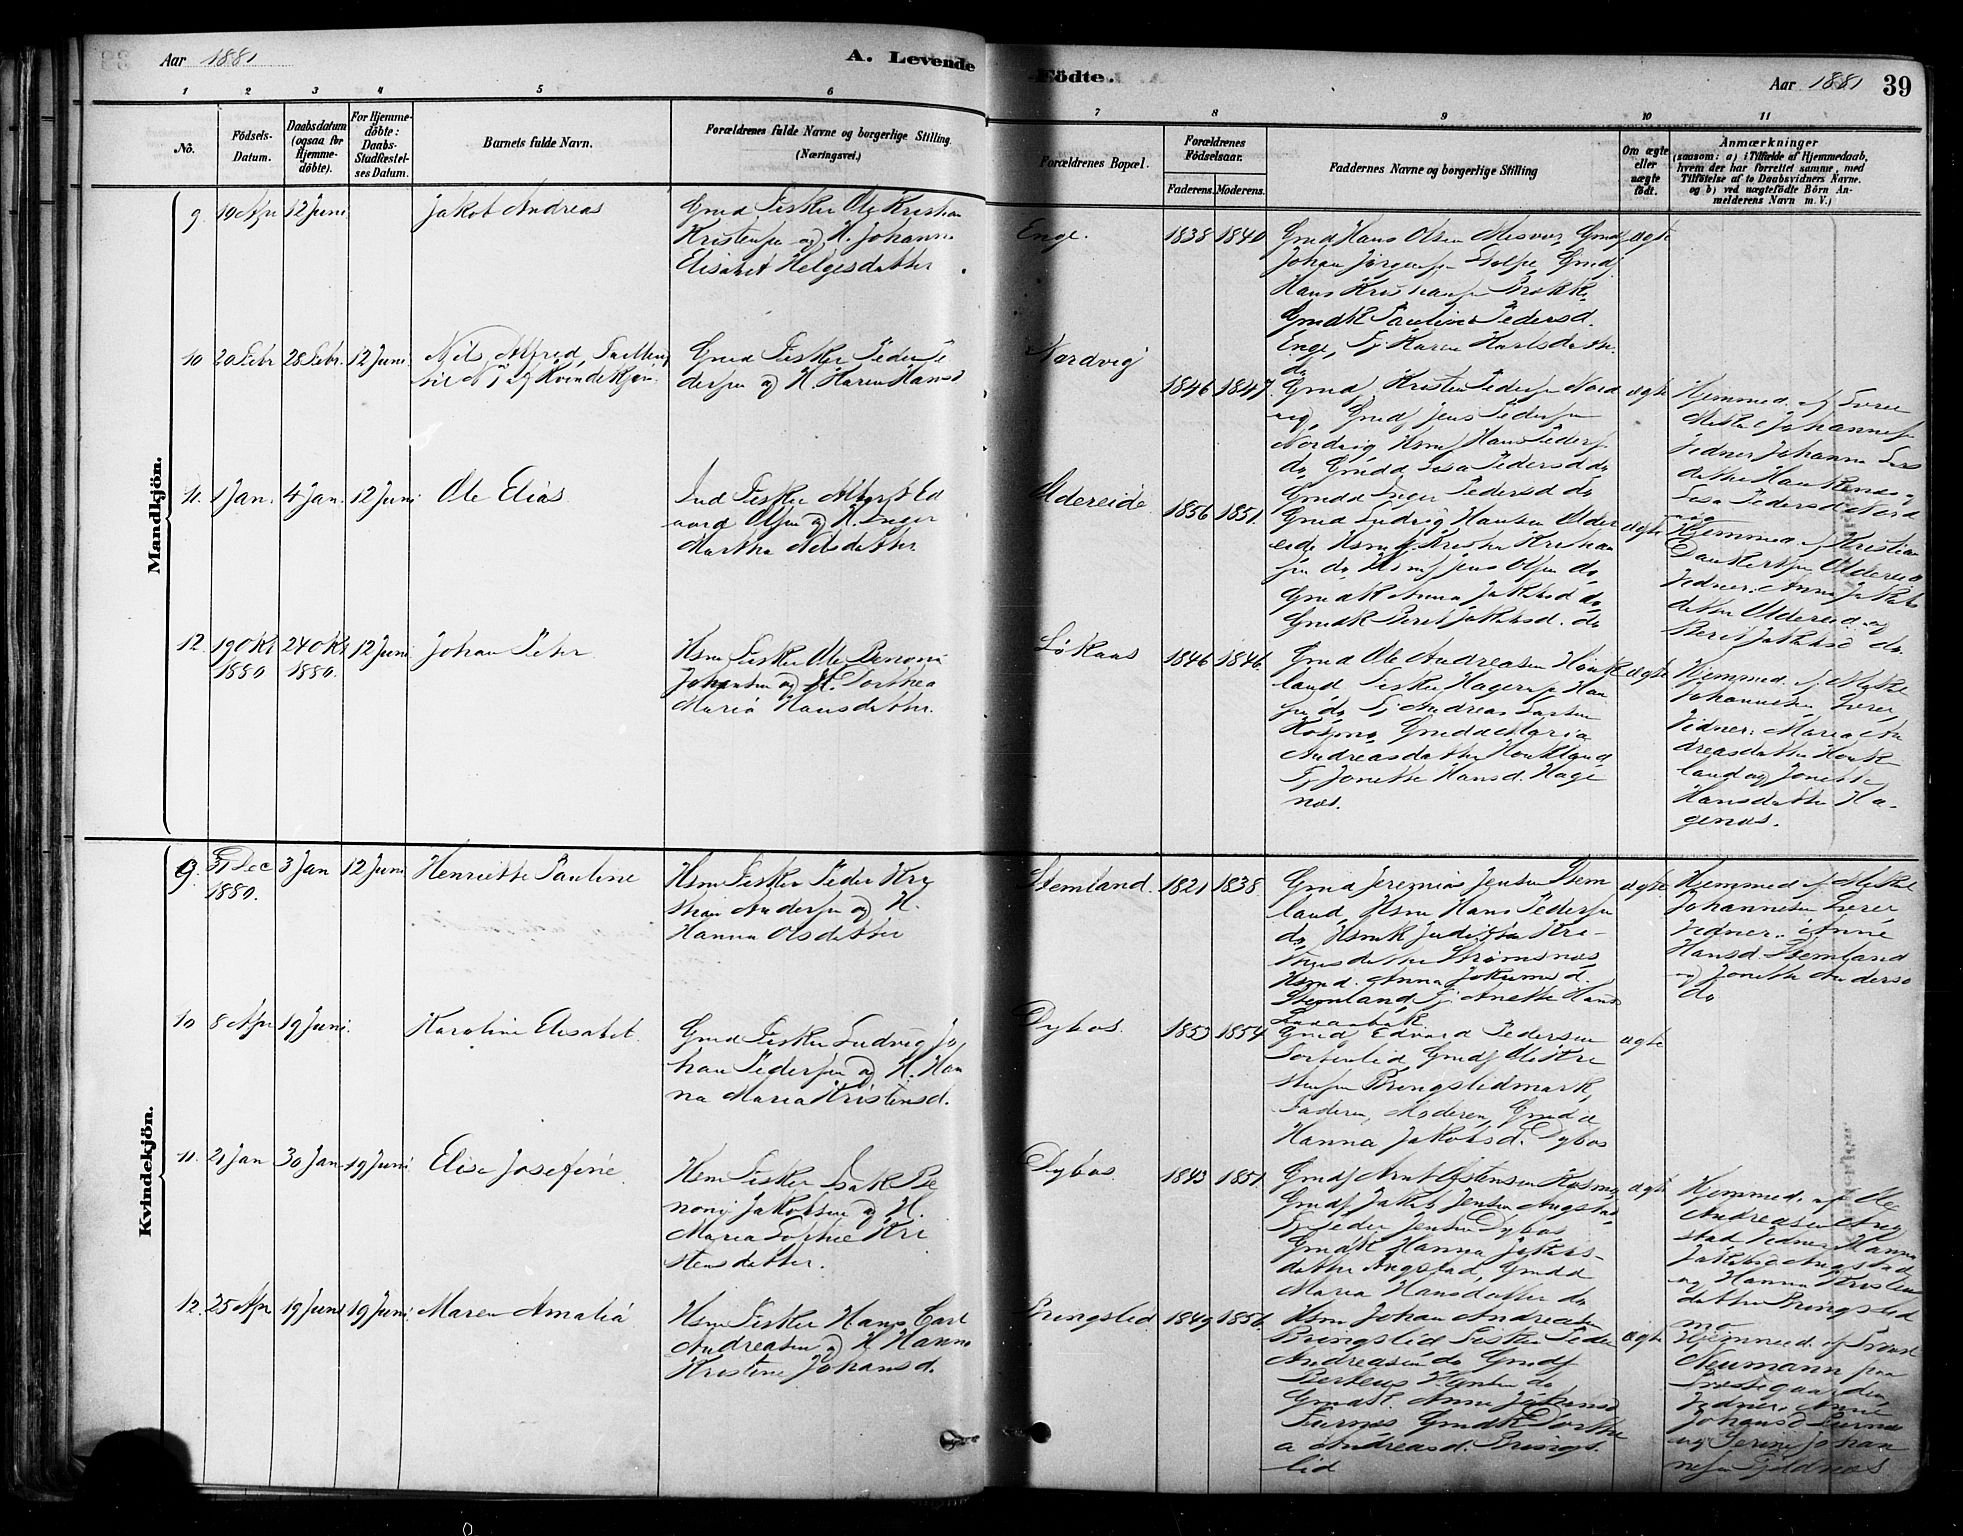 Aar 1881
A. Levende
Födte.
Aar 1881
39
1 2 3 4 5 6 7 8 9 10 11
No.
Födsels-
Datum.
Daabsdatum
(ogsaa for
Hjemme-
döbte).
For Hjemme-
döbte:
Daabs-
Stadfæstel-
ses Datum.
Barnets fulde Navn.
Forældrenes fulde Navne og borgerlige Stilling
(Næringsvei.)
Forældrenes Bopæl.
Forældrenes
Födselsaar.
Faderens. Moderens.
Faddernes Navne og borgerlige Stilling
Om ægte
eller
uægte
födt.
Anmærkninger
(saasom: a) i Tilfælde af Hjemmedaab,
hvem der har forrettet samme, med
Tilföielse af to Daabsvidners Navne.
og b) ved uægtefödte Börn An-
melderens Navn m. V.)
Mandkjön.
9. 10 Apr 12 Juni
Jakob Andreas
Gmd Fisker Ole Kristian
Kristensen og H. Johanna
Elisabet Helgesdatter
Enge.
1838 1840
Gmd Hans Olsen Misvær, Gmdf
Johan Jörgensen Stolpe Gmdf
Hans Kristiansen
GmdK Pauline Pedersd.
Enge, Pj Karen Karlsdatter
do
ægte
10 20 Febr 28 Febr. 12 Juni
Nils Alfred, Tvilling
til No 7 af Kvindekjön.
Gmd Fisker Peder Pe
dersen og H. Karen Hansd
Nordvig
1846 1847.
Gmdf Kristen Pedersen Nord
vig, Gmdf Jens Pedersen
Nordvig Hsmf Hans Pedersen
do, Gmdd Lisa Pedersd do
Gmdd Inger Pedersd do
ægte
Hjemmed. af Lærer
Mikkel Johannesen
Vidner Johanna Lars
datter Haukenæs og
Lisa Pedersd Nord
vig
11. 1 Jan. 4 Jan. 12 Juni
Ole Elias
Ind Fisker Albert Ed
vard Olsen og H. Inger
Martha Nilsdatter
Oldereide.
1856 1851.
Gmd Ludvig Hansen Older
eide Hsmf Kristen Kristian
sen do, Hsmf Jens Olsen do,
GmdK Anna Jakobsd do
GmdK Beret Jakobsd. do
ægte
Hjemmed. af Kristian
Dankertsen Oldereid
Vidner: Anna Jakobs
datter Oldereid og
Beret Jakobsd do.
12. 19 Okt 24 Okt 12 Juni
1880 1880.
Johan Peter
Hsm Fisker Ole Benoni
Johansen og H. Dorthea
Maria Hansdatter.
Løkaas
1846 1846.
Gmd Ole Andreasen Hauk
land Fisker Hagerup Han
sen do, Pj Andreas Larsen
Kosmo, Gmdd Maria
Andreasdatter Haukland
Pj Jonette Hansd. Hage
næs.
ægte
Hjemmed. af Mikkel
Johannesen, Lærer,
Vidner: Maria An
dreasdatter Hauk
land og Jonette
Hansdatter Ha-
genæs.
Kvindekjön.
9. 31 Dec 3 Jan 12 Juni
1880.
Henriette Pauline
Hsm Fisker Peder Kri
stian Andersen og H.
Hanna Olsdatter
Stemland.
1821 1838
Gmd Jeremias Jensen Stem
land, Hsm Hans Pedersen
do, HsmK Judithe Kri-
stensdatter Strømsnæs,
Hsmd. Anna Jokumsd.
Stemland, Pj. Anette Hansd
ægte.
Hjemmed af Mikkel
Johannesen Lærer,
Vidner: Anne
Hansd. Stemland
og Jonette Andersd
do
10 8 Apr 19 Juni.
Karoline Elisabet.
Gmd Fisker Ludvig Jo
han Pedersen og H. Han
na Maria Kristensd.
Dybos.
1853 1854.
Gmdf Edvard Pedersen
Gmdf Ole Kri
stensen Bringslidmark,
Faderen, Moderen, Gmdd
Hanna Jakobsd. Dybos
ægte
11. 21 Jan 30 Jan 19 Juni
Elise Josefine
Hsm Fisker Isak Be
noni Jakobsen og H.
Maria Sophie Kri
stensdatter.
Dybos.
1843 1851.
Gmdf Arnt Østensen Kosmo,
Gmdf Jakob Jensen Angstad
Pj Peder Jensen Dybos
GmdK Hanna Jakobs-
datter Angstad, Gmdd
Maria Hansdatter do
ægte
Hjemmed. af Ole
Andreasen Ang
stad Vidner: Hanna
Jakobsd Angstad
og Hanna Kristens
datter Bringslid
mo
12. 25 Apr 19 Juni 19 Juni.
Maren Amalia
Hsm Fisker Hans Carl
Andreasen og H Hanna
Kristine Johansd.
Bringslid
1849 1856.
Hsm Johan Andreasen
Bringslid Fisker Peder
Andreasen do Gmdf
Berteus do
Anne Johansd
GmdK Dorthe
a Andreasd. Brings
lid
ægte
Hjemmed. af Provst
Neumann paa
Præstegaarden,
Vidner: Anne
Johansd
og Johan
nesen